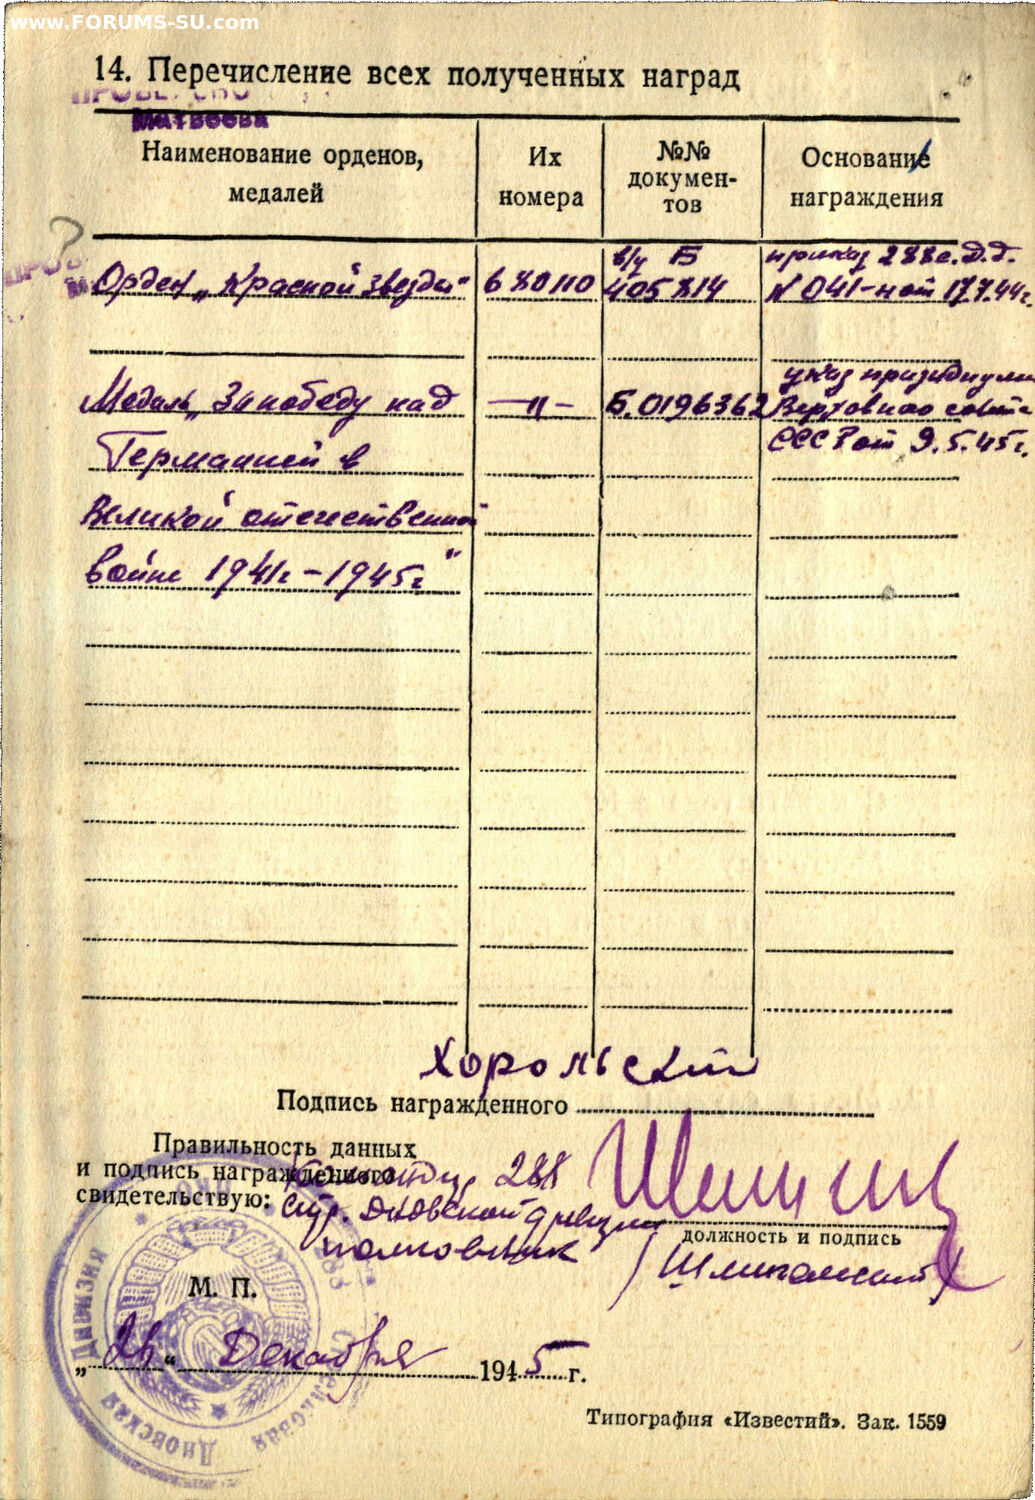 www.FORUMS-SU.com
14. Перечисление всех полученных наград
Матвеева
Наименование орденов, медалей
Их номера
№№ документов
Основание награждения
Орден „Красной Звезды"
680110
в/у Б
405814
приказ 288 с.Д.д.
N 041-н от 17.7.44г.
Медаль „За победу над
Германией в
Великой отечественной
войне 1941г-1945г"
—"—
Б.0196362
указ призидиума
Верховного совета
СССР от 9.5.45г.
Хорольский
Подпись награжденного
Правильность данных
и подпись награжденного
свидетельствую:
Командир 288
стр. Дновской дивизии
полковник
должность и подпись
М. П.
„26" Декабря 1945 г.
Дивизия
Стрелковая
Дновская
288
Типография «Известий». Зак. 1559